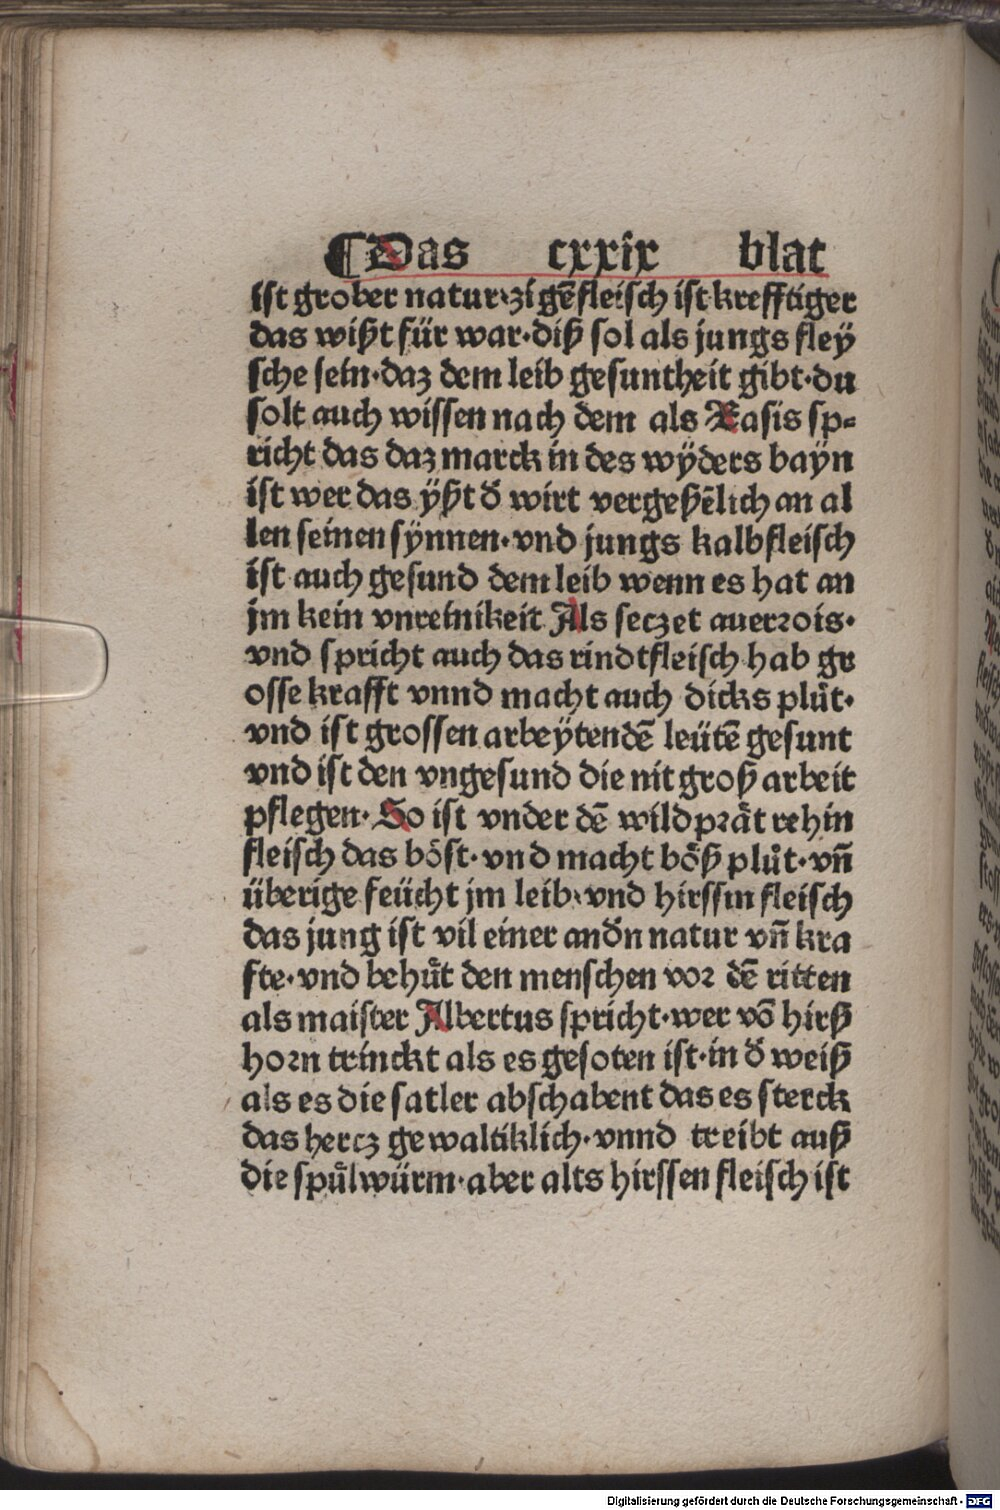 ¶ Das cxxix blat
ist grober natur·zigẽfleisch ist krefftiger
das wißt für war·diß sol als jungs fleÿ
sche sein·daz dem leib gesuntheit gibt·du
solt auch wissen nach dem als Rasis sp⸗
richt das daz marck in des wÿders baÿn
ist wer das ÿßt d̕ wirt vergeßẽlich an al
len seinen sÿnnen·vnd jungs kalbfleisch
ist auch gesund dem leib wenn es hat an
jm kein vnreinikeit Als seczet auerꝛois·
vnd spricht auch das rindtfleisch hab gr
osse krafft vnnd macht auch dicks plůt·
vnd ist grossen arbeÿtendẽ leütẽ gesunt
vnd ist den vngesund die nit groß arbeit
pflegen·So ist vnder dẽ wildpꝛåt rehin
fleisch das böst·vnd macht böß plůt·vñ
überige feücht jm leib·vnd hirssin fleisch
das jung ist vil einer and̕n natur vñ kra
fte·vnd behůt den menschen voꝛ dẽ ritten
als maister Albertus spricht·wer võ hirß
hoꝛn trinckt als es gesoten ist·in d̕ weiß
als es die satler abschabent das es sterck
das hercz gewaltiklich·vnnd treibt auß
die spůlwürm·aber alts hirssen fleisch ist
Digitalisierung gefördert durch die Deutsche Forschungsgemeinschaft - DFG